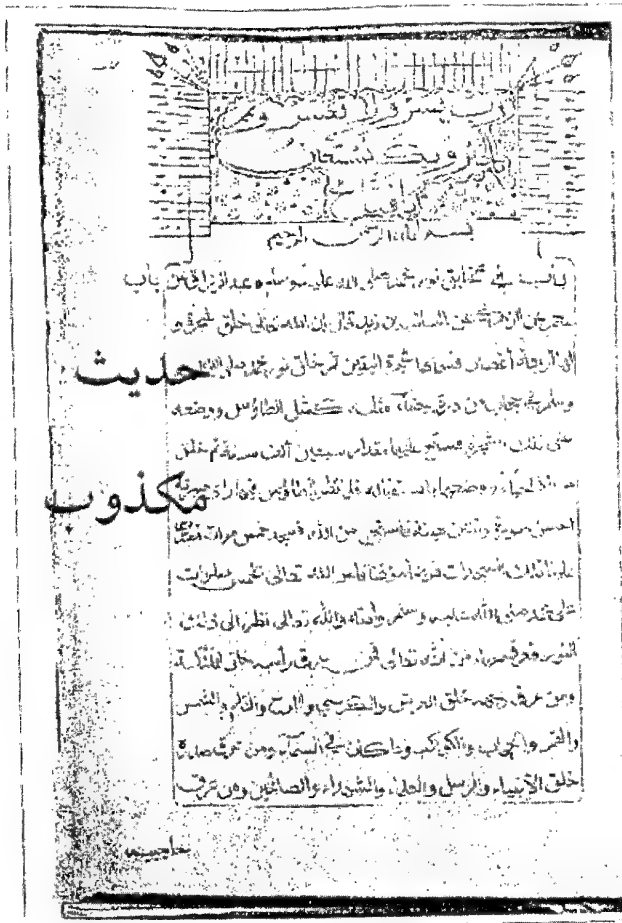 رب يسر ولا تعسر وتمم
بالخير وبك نستعين
يا فتاح
بسم الله الرحمن الرحيم
باب في تخليق نور محمد صلى الله عليه وسلم عبد الرزاق عن
معمر عن الزهري عن السائب بن يزيد قال إن الله تعالى خلق شجرة و
لها أربعة أغصان فسماها شجرة اليقين ثم خلق نور محمد صلى الله عليه
وسلم في حجاب من درة بيضاء مثله كمثل الطاؤس ووضعه
على تلك الشجرة فسبح عليها مقدار سبعين ألف سنة ثم خلق
مرآة الحياء ووضعها باستقباله فلما نظر الطاؤس فيها رأى صورته
أحسن صورة وأزين هيئة فاستحى من الله فسجد خمس مرات فصارت
علينا تلك السجدات فرضا مؤقتا فأمر الله تعالى بخمس صلوات
على محمد صلى الله عليه وسلم وأمته والله تعالى نظر إلى ذلك
النور فعرق حياء من الله تعالى فمن عرق رأسه خلق الملائكة
ومن عرق وجهه خلق العرش والكرسي واللوح والقلم والشمس
والقمر والحجاب والكواكب وما كان في السماء ومن عرق صدره
خلق الأنبياء والرسل والعلماء والشهداء والصالحين ومن عرق
حاجبيه
حديث
مكذوب